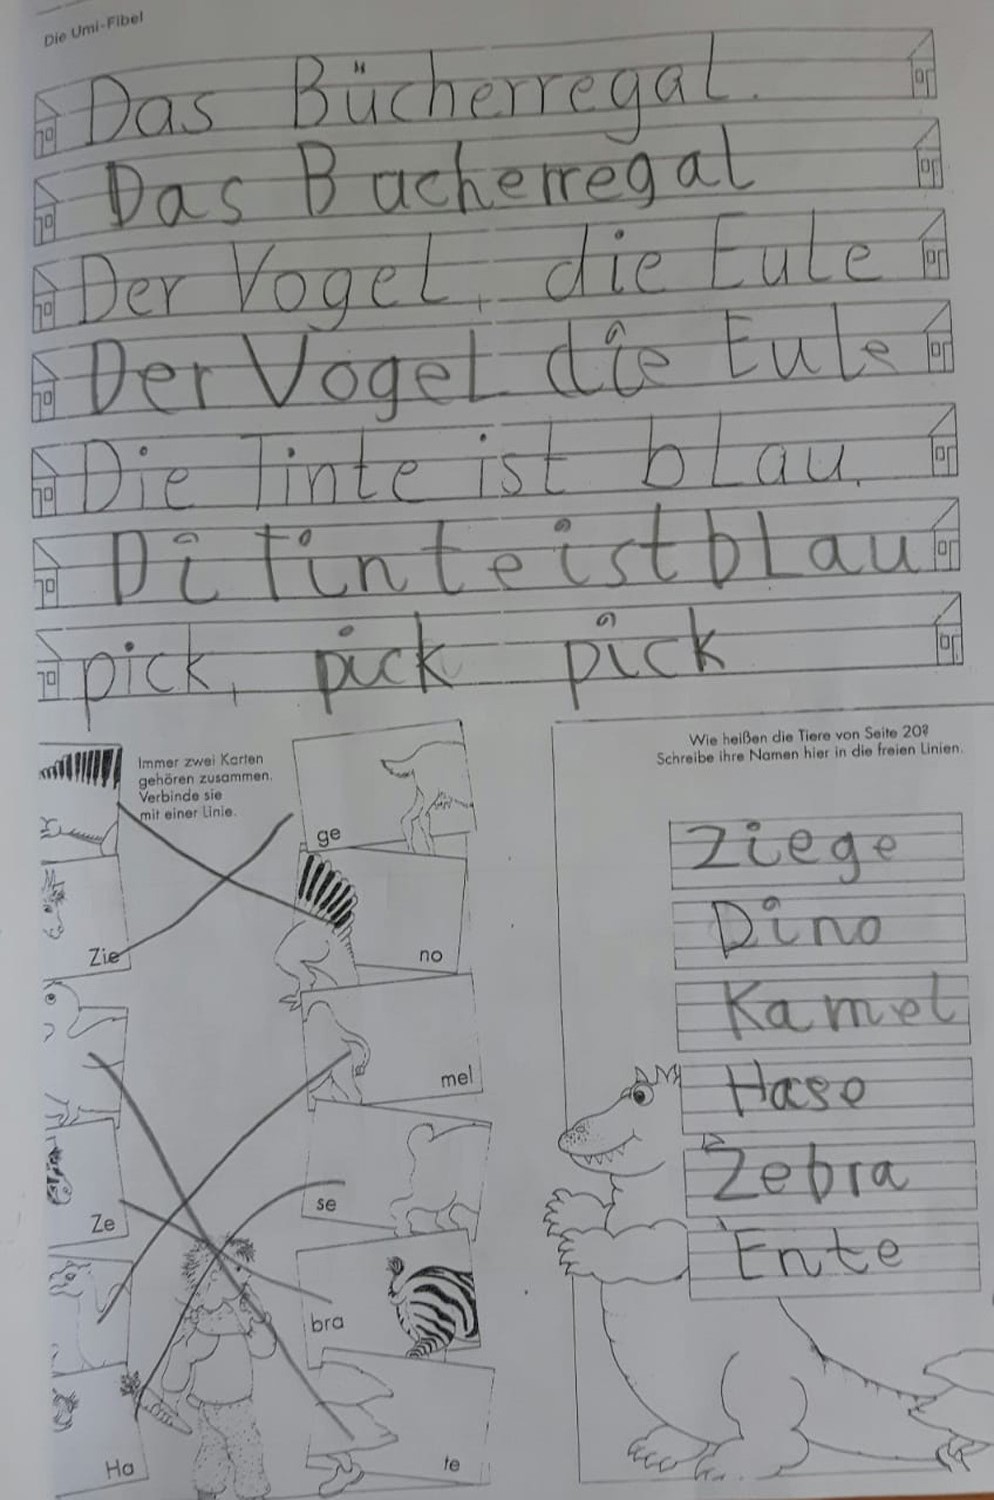 Die Umi-Fibel
Das Bücherregal.
Das Bucherregal
Der Vogel, die Eule
Der Vogel die Eule
Die Tinte ist blau.
Di tinte ist blau
pick, pick pick
Immer zwei Karten
gehören zusammen.
Verbinde sie
mit einer Linie.
ge
Zie
no
mel
Ze
se
bra
Ha
te
Wie heißen die Tiere von Seite 20?
Schreibe ihre Namen hier in die freien Linien.
Ziege
Dino
Kamel
Hase
Zebra
Ente